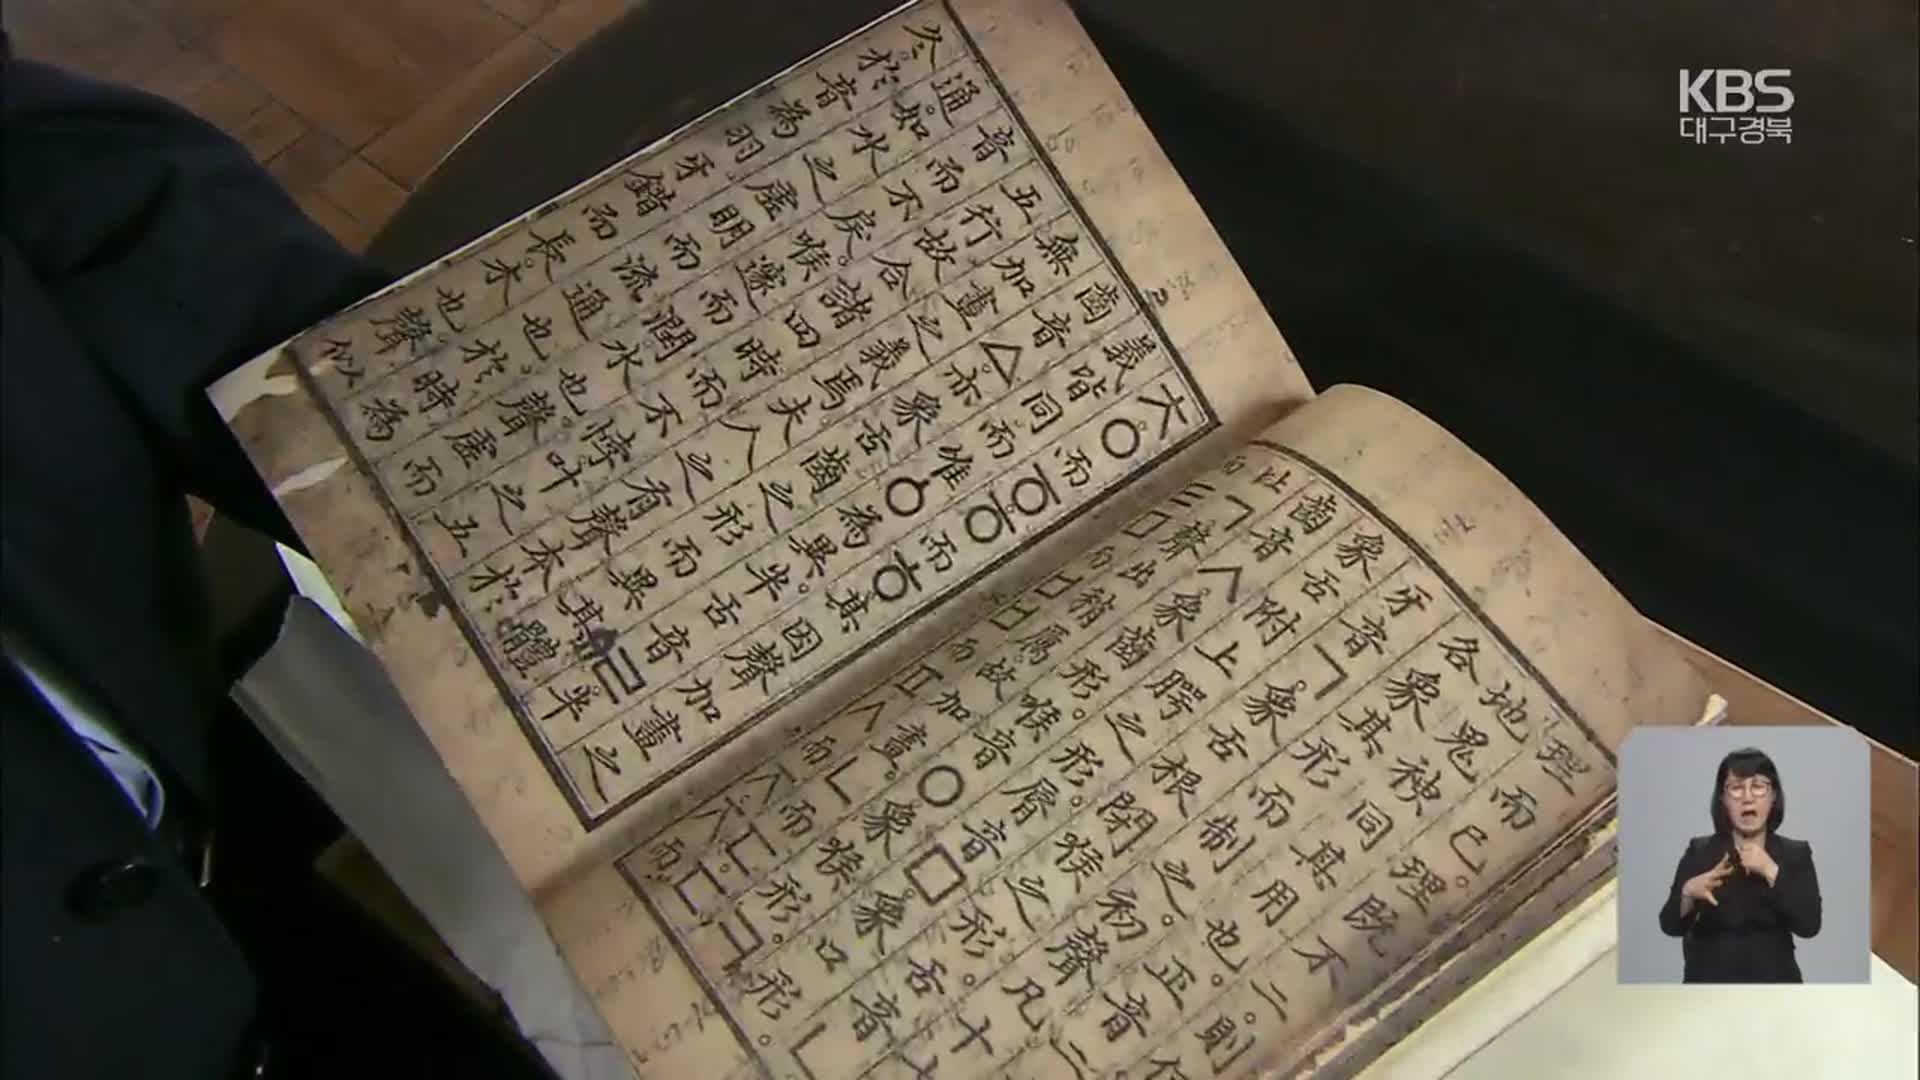 KBS
대구경북
理而已。理既不二。則何
地鬼神同其用也。正音二
各象其形而制之。初聲凡十七
牙音ㄱ。象舌根閉喉之形。舌音ㄴ
象舌附上腭之形。脣音ㅁ。象口形。
齒音ㅅ。象齒形。喉音ㅇ。象喉形。
比ㄱ。聲出稍厲。故加畫。ㄴ而ㄷ。ㄷ
而ㅌ。ㅁ而ㅂ。ㅂ而ㅍ。ㅅ而ㅈ。ㅈ而
ㅊ。ㅇ而ㆆ。ㆆ而ㅎ。其因聲加畫之
義皆同。而唯ㆁ為異。半舌音ㄹ。半
齒音ㅿ。亦象舌齒之形而異其體。
無加畫之義焉。夫人之有聲本於
五行。故合諸四時而不悖。叶之五
音而不戾。喉邃而潤。水也。聲虛而
通。如水之虛明而流通也。於時為
冬。於音為羽。牙錯而長。木也。聲似